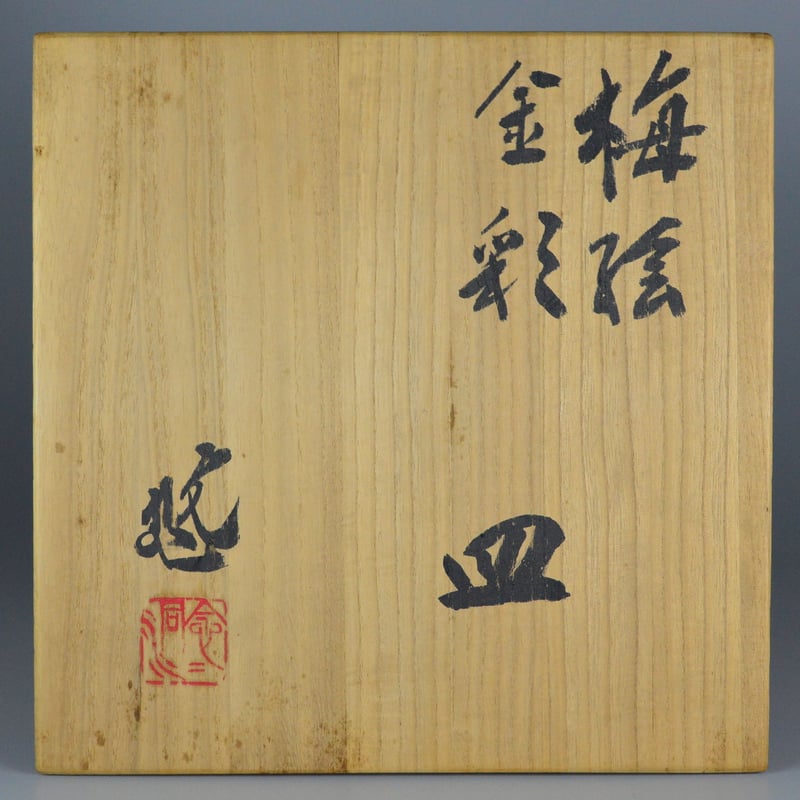 梅絵
金彩
皿